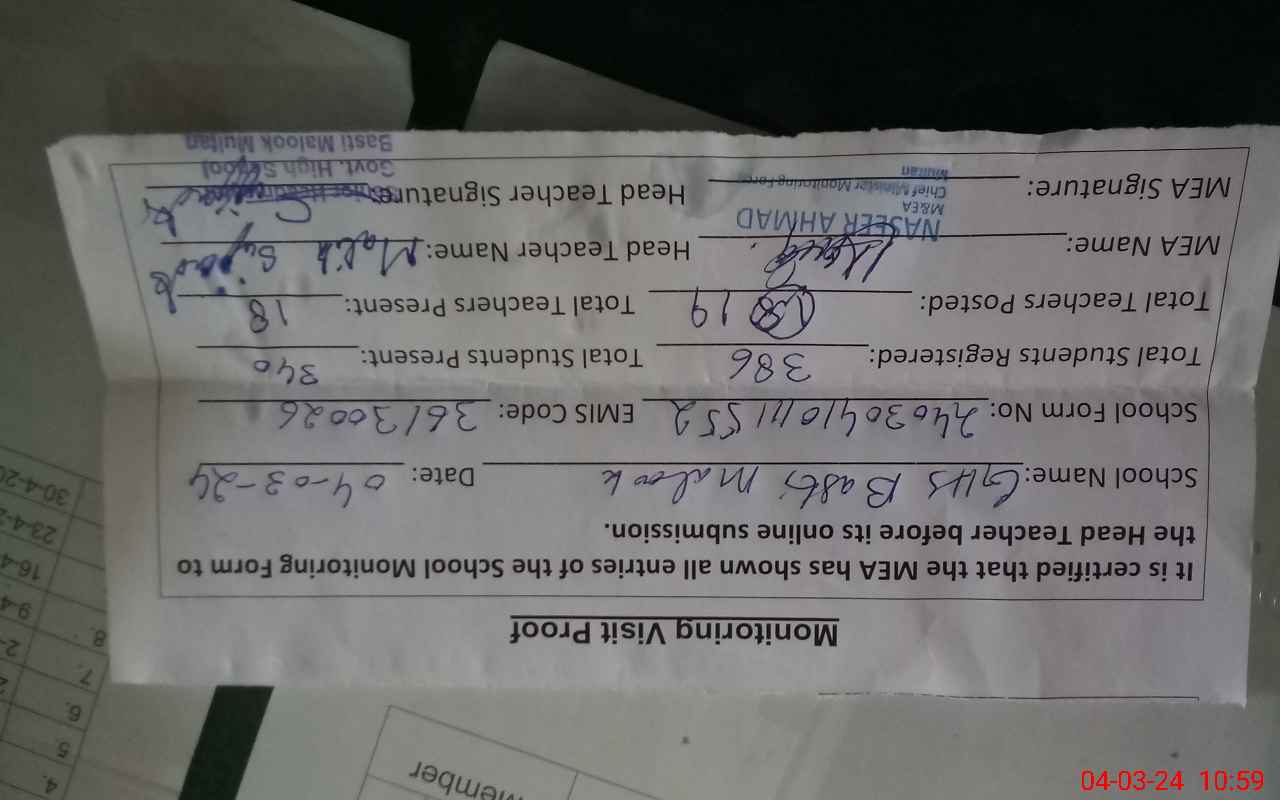 Monitoring Visit Proof
It is certified that the MEA has shown all entries of the School Monitoring Form to
the Head Teacher before its online submission.
School Name: GHS Basti Malook Date: 04-03-24
School Form No: EMIS Code: 36130026
Total Students Registered: 386 Total Students Present: 340
Total Teachers Posted: 19 Total Teachers Present: 18
MEA Name: Head Teacher Name: Malik
NASEER AHMAD
M&EA
Chief Minister Monitoring Force
Multan
MEA Signature: Head Teacher Signature:
Govt. High School
Basti Malook Multan
Member
4.
5.
6.
7.
8.
9-4
16-4
23-4-2
30-4-20
04-03-24 10:59